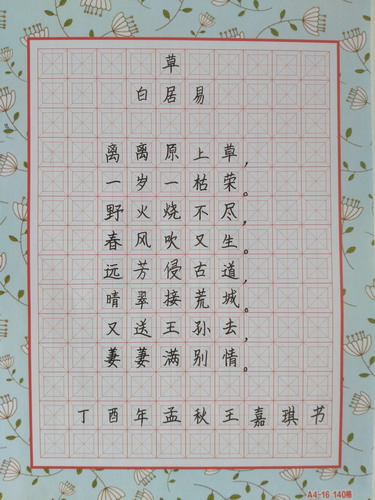 草
白居易
离离原上草，
一岁一枯荣。
野火烧不尽，
春风吹又生。
远芳侵古道，
晴翠接荒城。
又送王孙去，
萋萋满别情。
丁酉年孟秋王嘉琪书
A4-16 140格